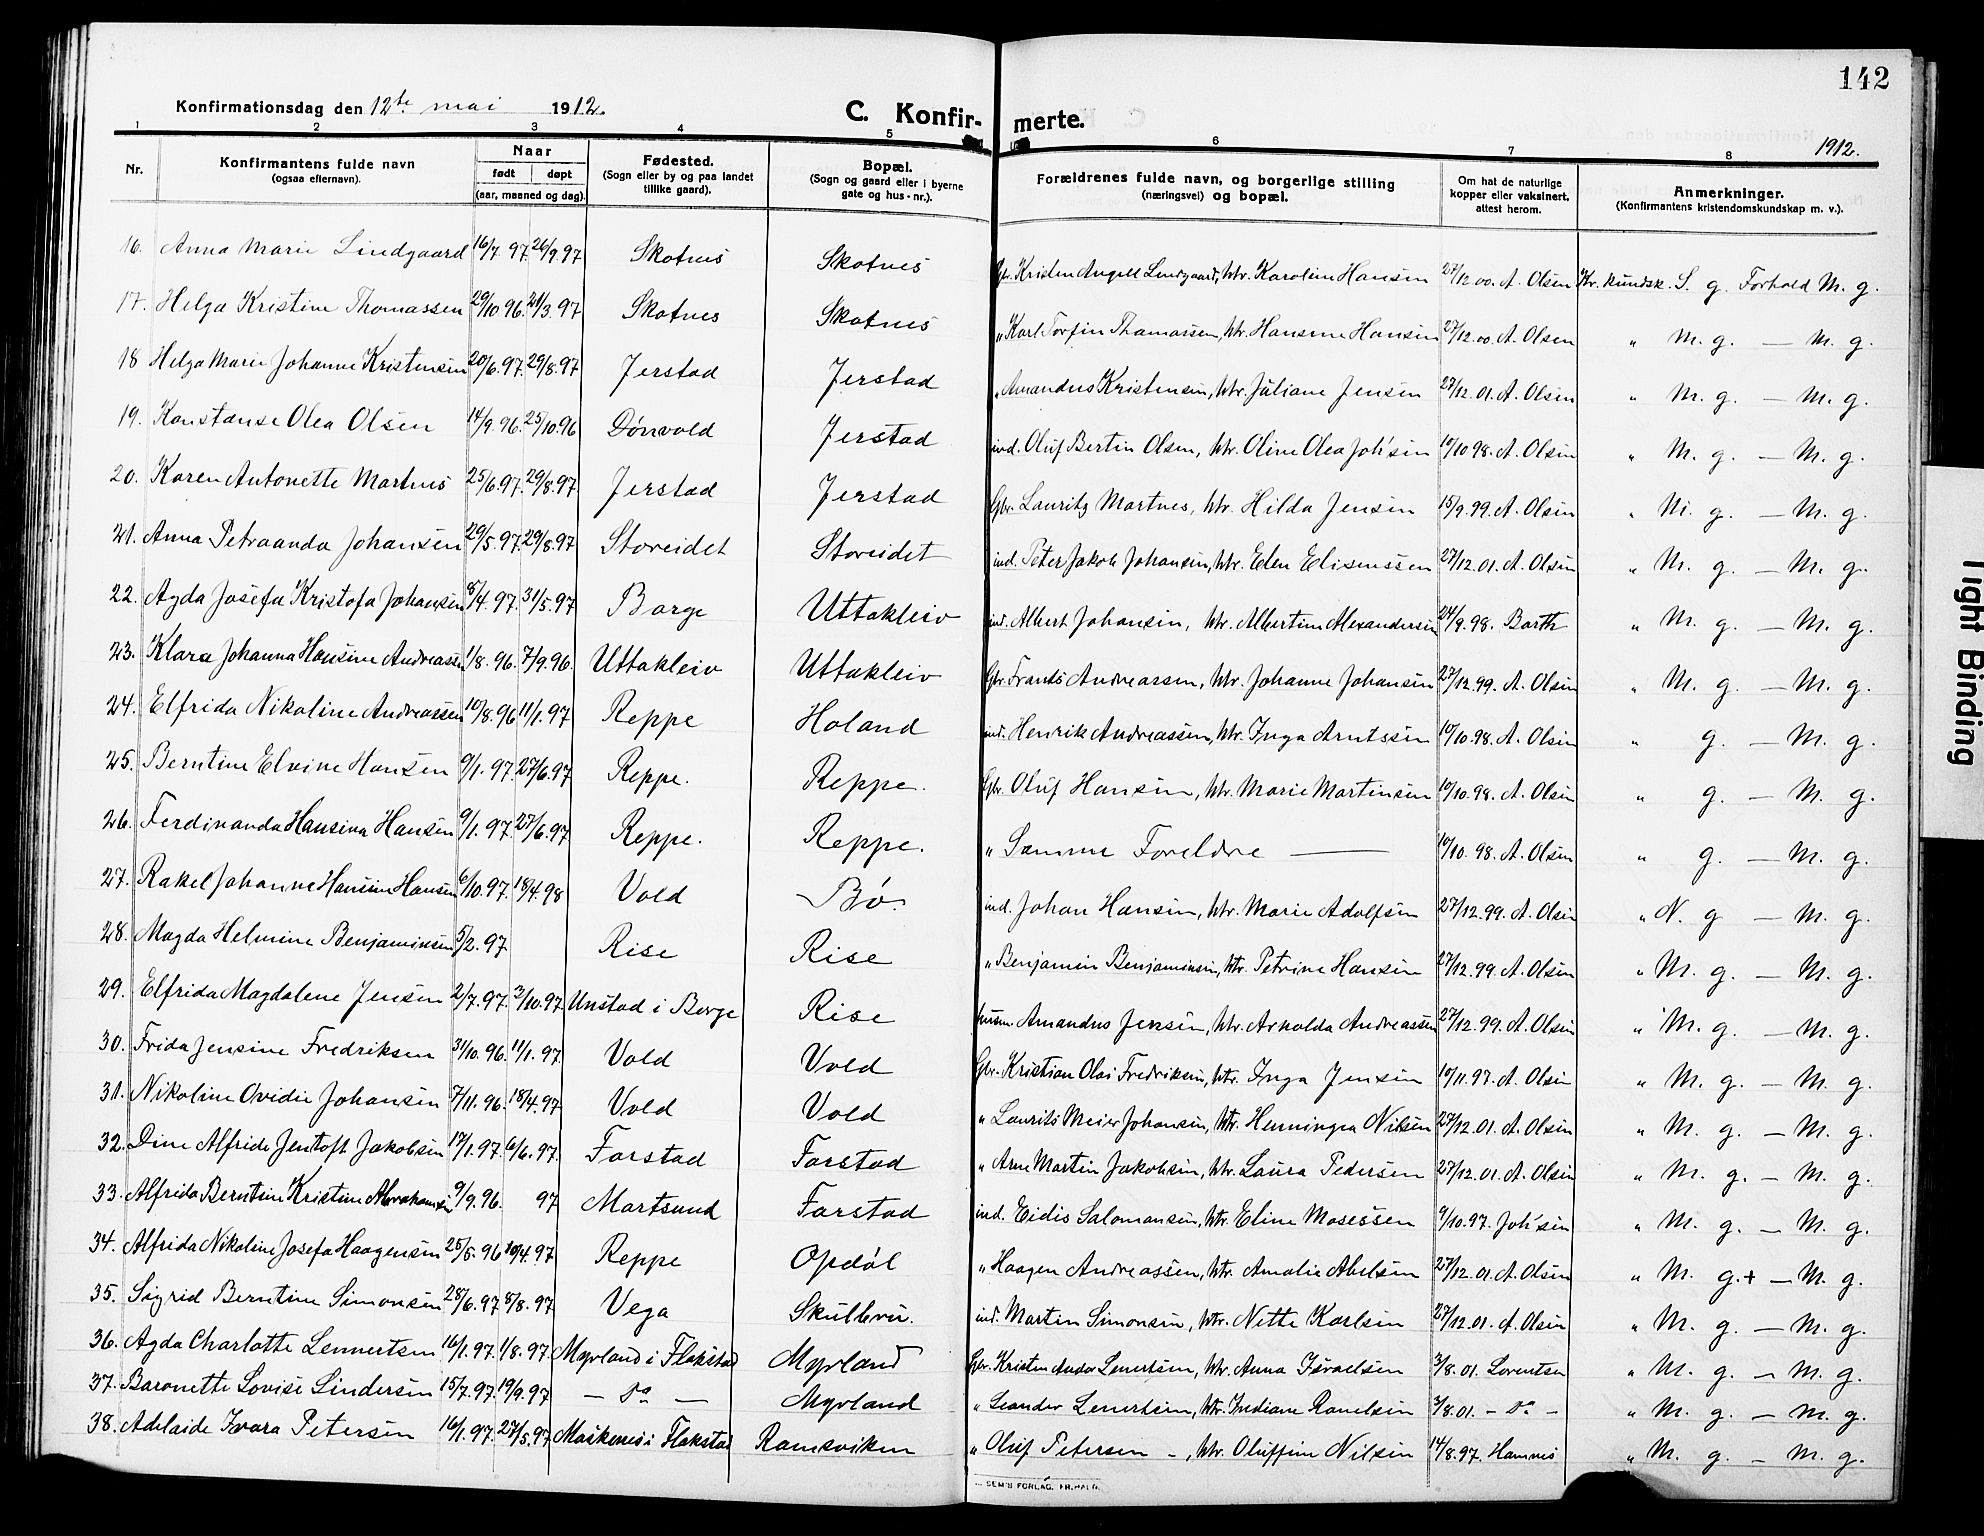 142
Konfirmationsdag den 12te mai 1912.
C. Konfirmerte.
1912.
1 2 3 4 5 6 7 8
Nr. Konfirmantens fulde navn (ogsaa efternavn). Naar født døpt (aar, maaned og dag). Fødested. (Sogn eller by og paa landet tillike gaard). Bopæl. (Sogn og gaard eller i byerne gate og hus-nr.). Forældrenes fulde navn, og borgerlige stilling (næringsvei) og bopæl. Om hat de naturlige kopper eller vaksinert, attest herom. Anmerkninger. (Konfirmantens kristendomskundskap m. v.).
16. Anna Marie Lindgaard 16/7 97. 26/9.97 Skotnes Skotnes Gbr. Kristen Angell Lindgaard, htr. Karoline Hansen 27/12.00. A. Olsen Kr. kundsk. S. g. Forhold M. g.
17. Helga Kristine Thomassen 29/10 96. 21/3.97 Skotnes Skotnes " Karl Torfin Thomassen, htr. Hansine Hansen 27/12.00. A. Olsen " M. g. — M. g.
18 Helga Marie Johanne Kristensen 20/6.97. 29/8.97 Jerstad Jerstad " Amandus Kristensen, htr. Juliane Jensen 27/12.01. A. Olsen " M. g. — M. g.
19. Konstanse Olea Olsen 14/9.96. 25/10.96 Dønvold Jerstad ind. Oluf Bertin Olsen, htr. Oline Olea Joh'sen 10/10.98. A. Olsen " M. g. — M. g.
20. Karen Antonette Martnes 25/6.97. 29/8.97 Jerstad Jerstad Gbr. Lauritz Martnes, htr. Hilda Jensen 15/9.99. A. Olsen " M. g. — M. g.
21. Anna Petraanda Johansen 29/5.97. 29/8.97 Storeidet Storeidet ind. Peter Jakob Johansen, htr. Elen Eliseussen 27/12.01. A. Olsen " M. g. — M. g.
22. Agda Josefa Kristofa Johansen 8/4.97. 31/5.97 Borge Uttakleiv ind. Albert Johansen, htr. Albertine Alexandersen 24/9.98. Barth " M. g. — M. g.
23. Klara Johanna Hansine Andreassen 1/8.96. 7/9.96. Uttakleiv Uttakleiv Gbr. Frants Andreassen, htr. Johanne Johansen 27/12.99. A. Olsen " M. g. — M. g.
24. Elfrida Nikoline Andreassen 10/8.96 11/1.97 Reppe Holand ind. Henrik Andreassen, htr. Inga Arntssen 10/10.98. A. Olsen " g. — M. g.
25. Berntine Elvine Hansen 9/1.97. 27/6.97 Reppe. Reppe. Gbr. Oluf Hansen, htr. Marie Martinsen 10/10.98. A. Olsen " g. — M. g.
26. Ferdinanda Hansina Hansen 9/1.97. 27/6.97 Reppe. Reppe. " Samme Foreldre — 10/10.98. A. Olsen " g. — M. g.
27. Rakel Johanne Hansine Hansen 6/10.97. 18/4.98 Vold Bø. ind. Johan Hansen, htr. Marie Adolfsen 27/12.99. A. Olsen " N. g — M. g.
28. Magda Helmine Benjaminsen 5/2.97 Rise Rise " Benjamin Benjaminsen, htr. Petrine Hansen 27/12.99. A. Olsen " M. g. — M. g.
29. Elfrida Magdalene Jensen 2/7.97. 3/10.97. Unstad i Borge Rise husm. Amandus Jensen, htr. Arnolda Andreassen 27/12.99. A. Olsen " M. g. — M. g.
30. Frida Jensine Fredriksen 31/10.96. 11/1.97 Vold Vold Gbr. Kristian Olai Fredriksen, htr. Inga Jensen 10/11.97. A. Olsen " M. g. — M. g.
31. Nikoline Ovidie Johansen 7/11.96. 18/4.97 Vold Vold " Laurits Meier Johansen, htr. Henningea Nilsen 27/12.01. A. Olsen " M. g. — M. g.
32. Dine Alfride Jentoft Jakobsen 17/1.97. 6/6.97. Farstad Farstad " Arne Martin Jakobsen, htr. Laura Pedersen 27/12.01. A. Olsen " M. g. — M. g.
33. Alfrida Berntine Kristine Abrahamsen 9/9.96. 97 Mortsund Farstad ind. Eidis Salomansen, htr. Eline Mosessen 9/10.97. Joh'sen " M. g. — M. g.
34. Alfrida Nikoline Josefa Haagensen 25/5.96 10/4.97 Reppe Opdøl " Haagen Andreassen, htr. Amalie Abelsen 27/12.01. A. Olsen " M. g.+ — M. g.
35. Sigrid Berntine Simonsen 28/6.97 8/8.97 Vega Skulbru. ind. Martin Simonsen, htr. Nette Karlsen 27/12.01. A. Olsen " M. g. — M. g.
36. Agda Charlotte Lennertsen 16/1.97. 1/8.97. Myrland i Flakstad Myrland Gbr. Kristen Andor Lenertsen, htr. Anna Israelsen 3/8.01. Lorentsen " M. g. — M. g.
37. Baronette Lovise Lindersen 15/7.97. 19/9.97 — do — Myrland " Leander Lenertsen, htr. Indiane Ranelsen 3/8.01. — do — " M. g. — M. g.
38. Adelaide Ivara Petersen 16/1.97. 27/5.97 Moskenes i Flakstad Ramsviken " Oluf Petersen —, htr. Oluffine Nilsen 14/8.97. Hamnes " M. g. — M. g.
SEM'S FORLAG,
Tight Binding